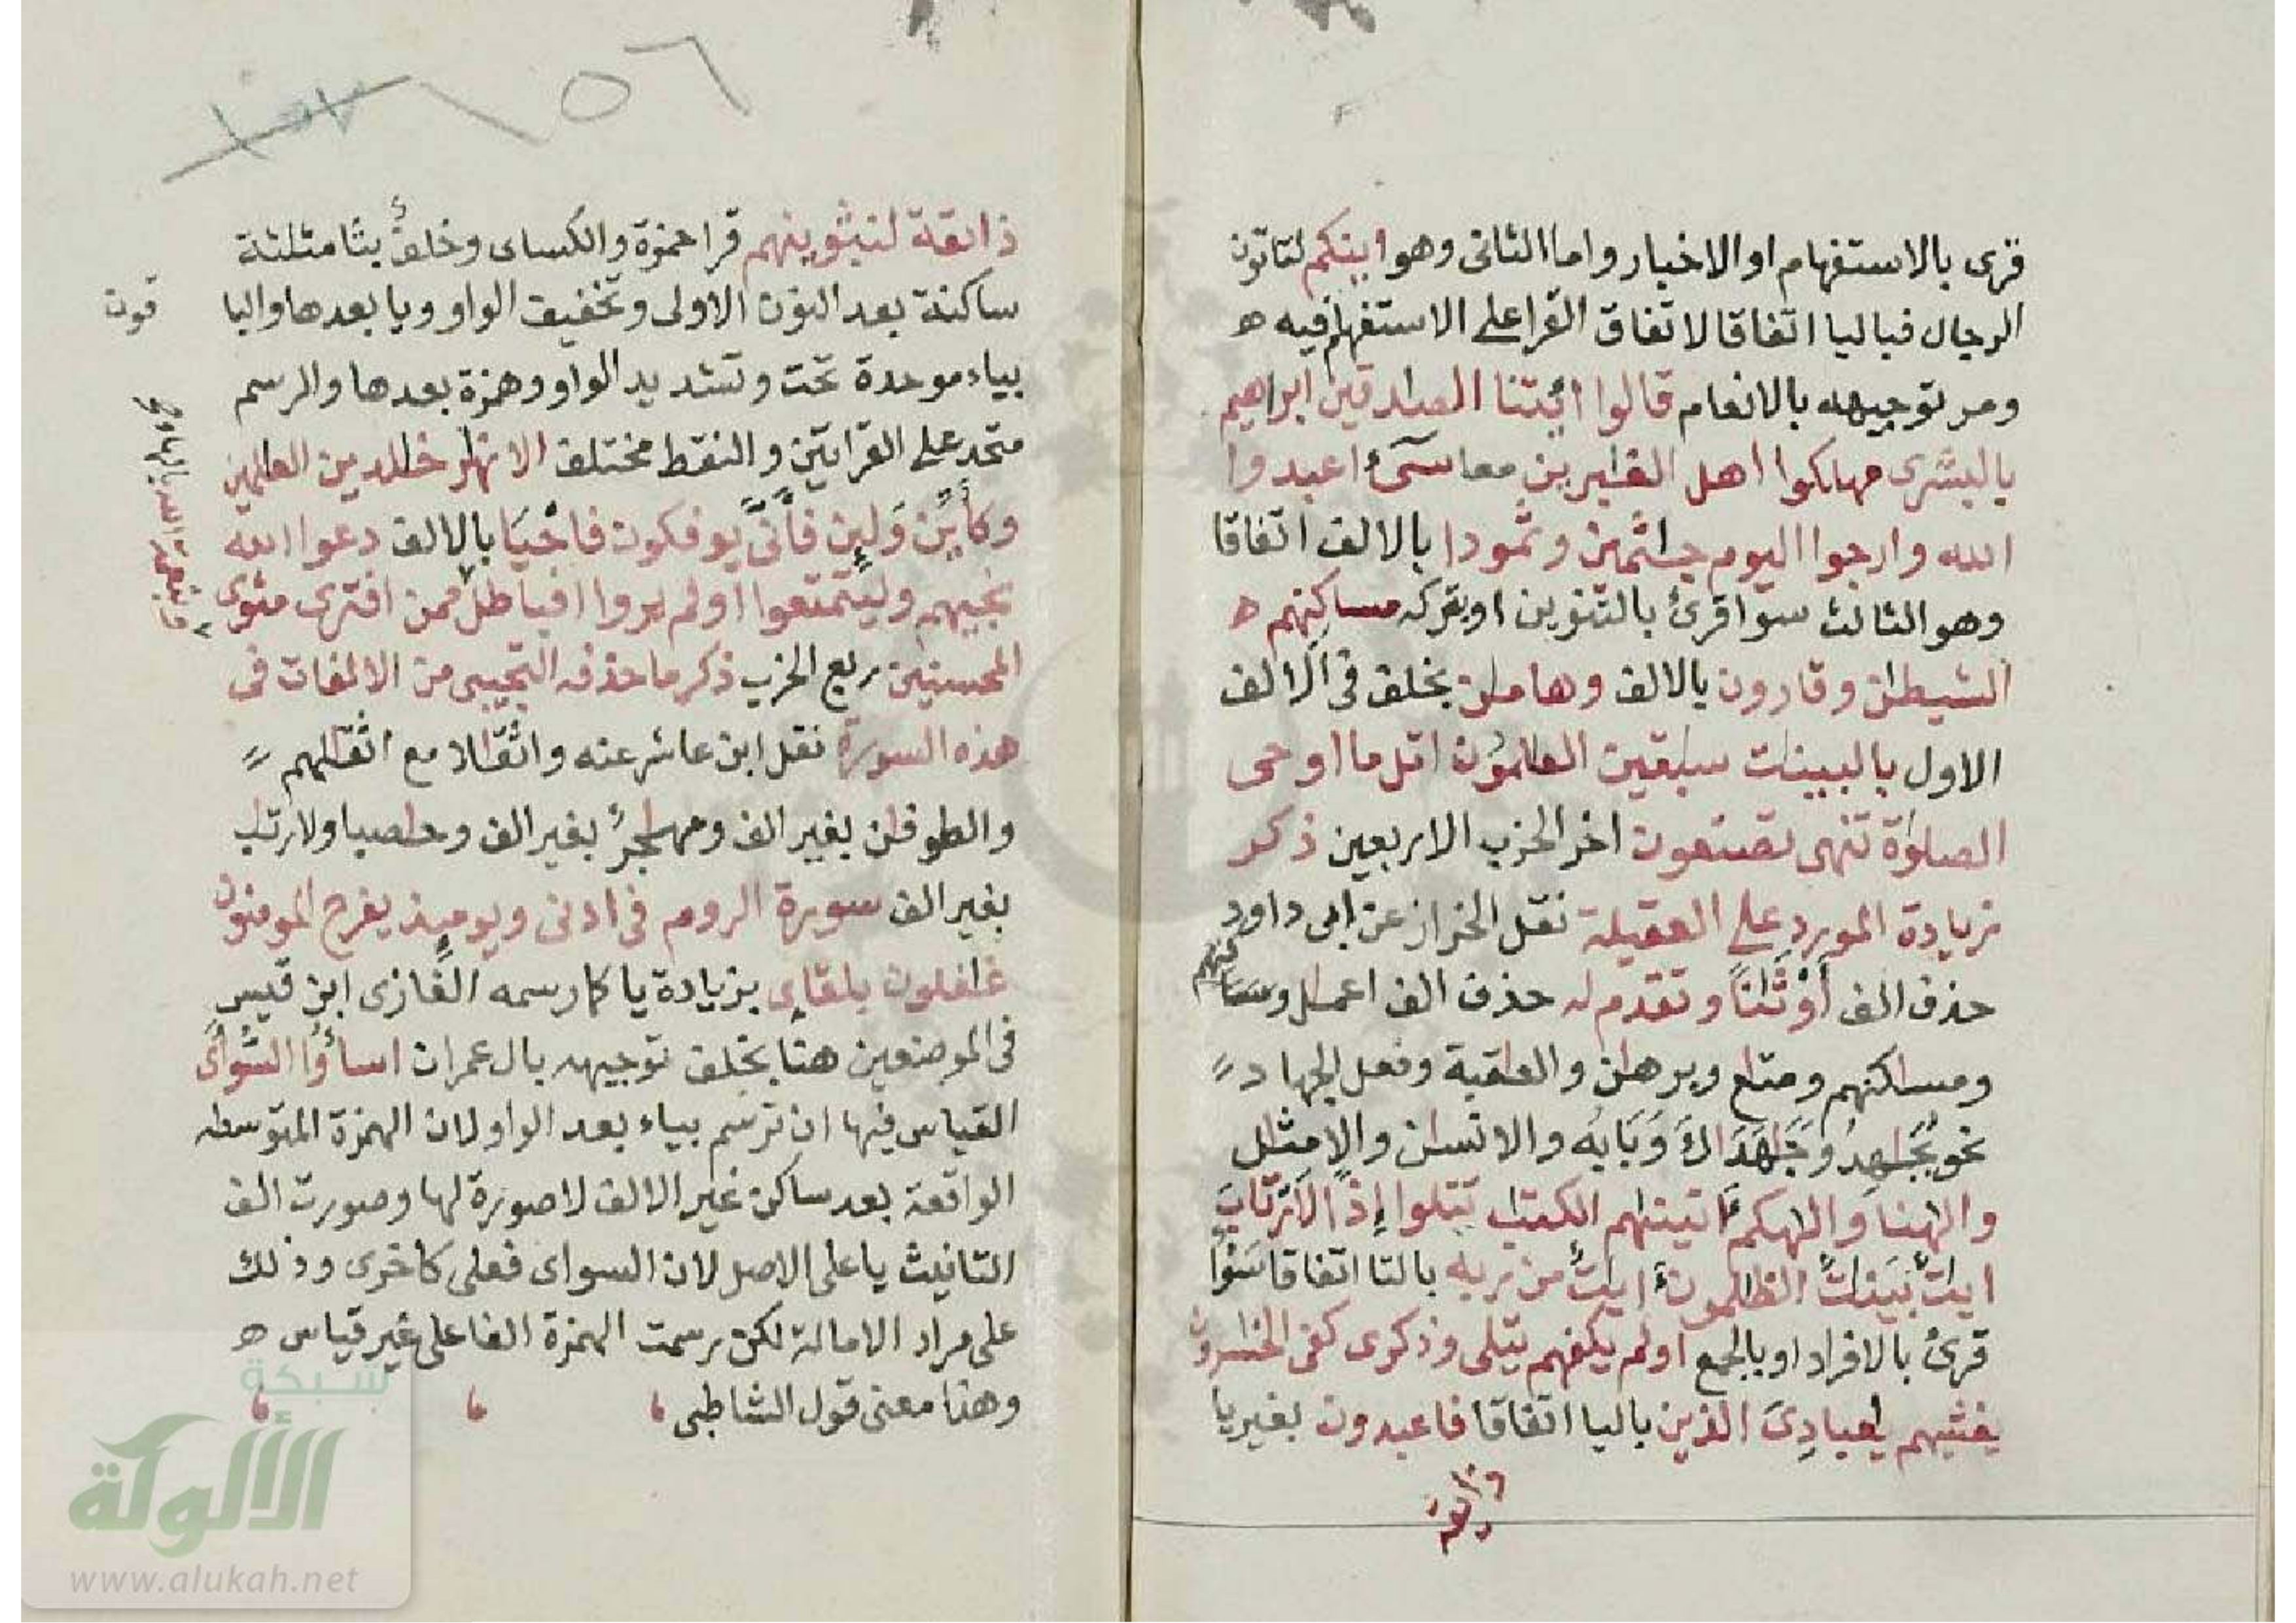 قرى بالاستفهام او الاخبار واما الثانى وهو اينكم لتاتون
الرجال فباليا اتفاقا لاتفاق القرا على الاستفهام فيه ه
ومر توجيهه بالانعام قالوا ائتنا الصدقين ابراهيم
بالبشرى مهلكوا اهل الغبرين معا سىء اعبدوا
الله وارجوا اليوم جثمين وثمودا بالالف اتفاقا
وهو الثالث سوا قرئ بالتنوين او بتركه مساكنهم ه
الشيطن وقارون بالالف وهامن بخلف فى الالف
الاول بالبينت سبقين العلمون اتل ما اوحى
الصلوة تنهى تصنعون اخر الحزب الاربعين ذكر
زيادة المورد على العقيلة نقل الخراز عن ابى داود
حذف الف أوثنا وتقدم له حذف الف اعمل
ومسكنهم ومتع وبرهن والعقبة وفعل الجهاد
نحو يجهد وجهداك وبايه والانسن والامثل
والهنا والهكم اتينهم الكتب تتلوا إذا لارتاب
ايت بينت الظلمون ايت من ربه بالتا اتفاقا سوا
قرئ بالافراد او بالجمع اولم يكفهم يتلى وذكرى كفى الخسرون
يغشيهم يعبادى الذين باليا اتفاقا فاعبدون بغير يا
ذائقة
١٥٦
ذائقة لنبثوينهم قرا حمزة والكساى وخلف بثا مثلثة
ساكنة بعد النون الاولى وتخفيف الواو ويا بعدها والبا
قون
بياء موحدة تحت وتشديد الواو وهمزة بعدها والرسم
متحد على القرايتين والنقط مختلف الانهر خلدين العلمين
وكأين ولين فأنى يوفكون فاحيا بالالف دعوا الله
نجيهم وليتمتعوا اولم يروا افبالطل ممن افترى مثوى
المحسنين ربع الحزب ذكر ما حذفه التجيبى من الالفات فى
هذه السورة نقل ابن عاشر عنه واثقالا مع اثقلهم
والطوفن بغير الف ومهجر بغير الف وحصبا ولارتب
بغير الف سورة الروم فى ادنى ويوميذ يفرح المومنون
غفلون بلقاى بزيادة يا كما رسمه الغازى ابن قيس
فى الموضعين هنا بخلف توجيهه بال عمران اسأوا السوأى
القياس فيها ان ترسم بياء بعد الواو لان الهمزة المتوسطه
الواقعة بعد ساكن غير الالف لا صورة لها وصورت الف
التانيث يا على الاصل لان السواى فعلى كاخرى وذلك
على مراد الامالة لكن رسمت الهمزة الفا على غير قياس ه
وهذا معنى قول الشاطبى
شبكة
الألوكة
www.alukah.net